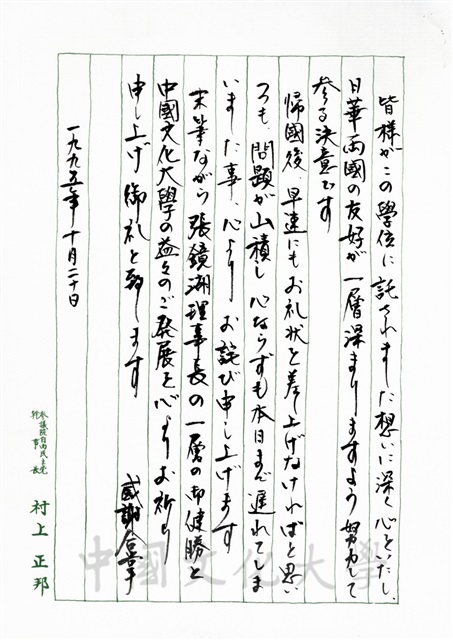 皆様がこの學位に託されました想いに深く心をいたし、
日華両國の友好が一層深まりますよう努力して
参る決意です
帰國後、早速にもお礼状を差し上げなければと思い
つゝも、問題が山積し心ならずも本日まで遅れてしま
いました事、心よりお詫び申し上げます
末筆ながら張鏡湖理事長の一層の御健勝と
中國文化大學の益々のご発展を心よりお祈り
申し上げ御礼と致します
感謝合掌
一九九五年十月二十日
参議院自由民主党
幹事長
村上正邦
中國文化大學